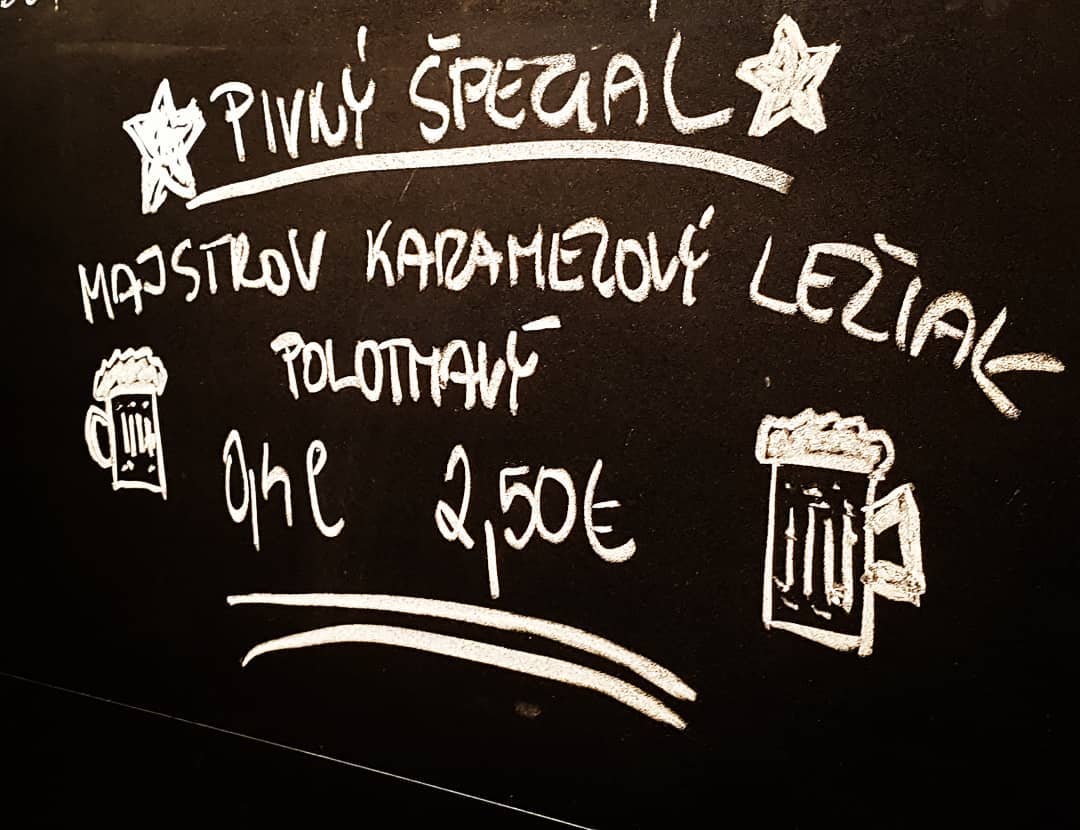 PIVNÝ ŠPECIAL
MAJSTROV KARAMELOVÝ LEŽIAK
POLOTMAVÝ
0,4l 2,50€